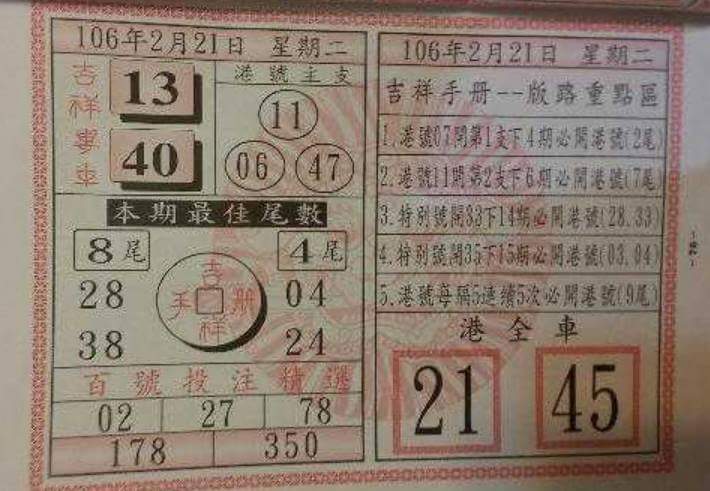 106年2月21日 星期二
吉祥專車
13
40
港號主支
11
06 47
本期最佳尾數
8尾 4尾
28 04
38 24
吉祥手冊
百號投注精選
02 27 78
178 350
106年2月21日 星期二
吉祥手册--版路重點區
1.港號07開第1支下4期必開港號(2尾)
2.港號11開第2支下6期必開港號(7尾)
3.特別號開33下14期必開港號(28.33)
4.特別號開35下15期必開港號(03.04)
5.港號每隔5連續5次必開港號(9尾)
港全車
21 45